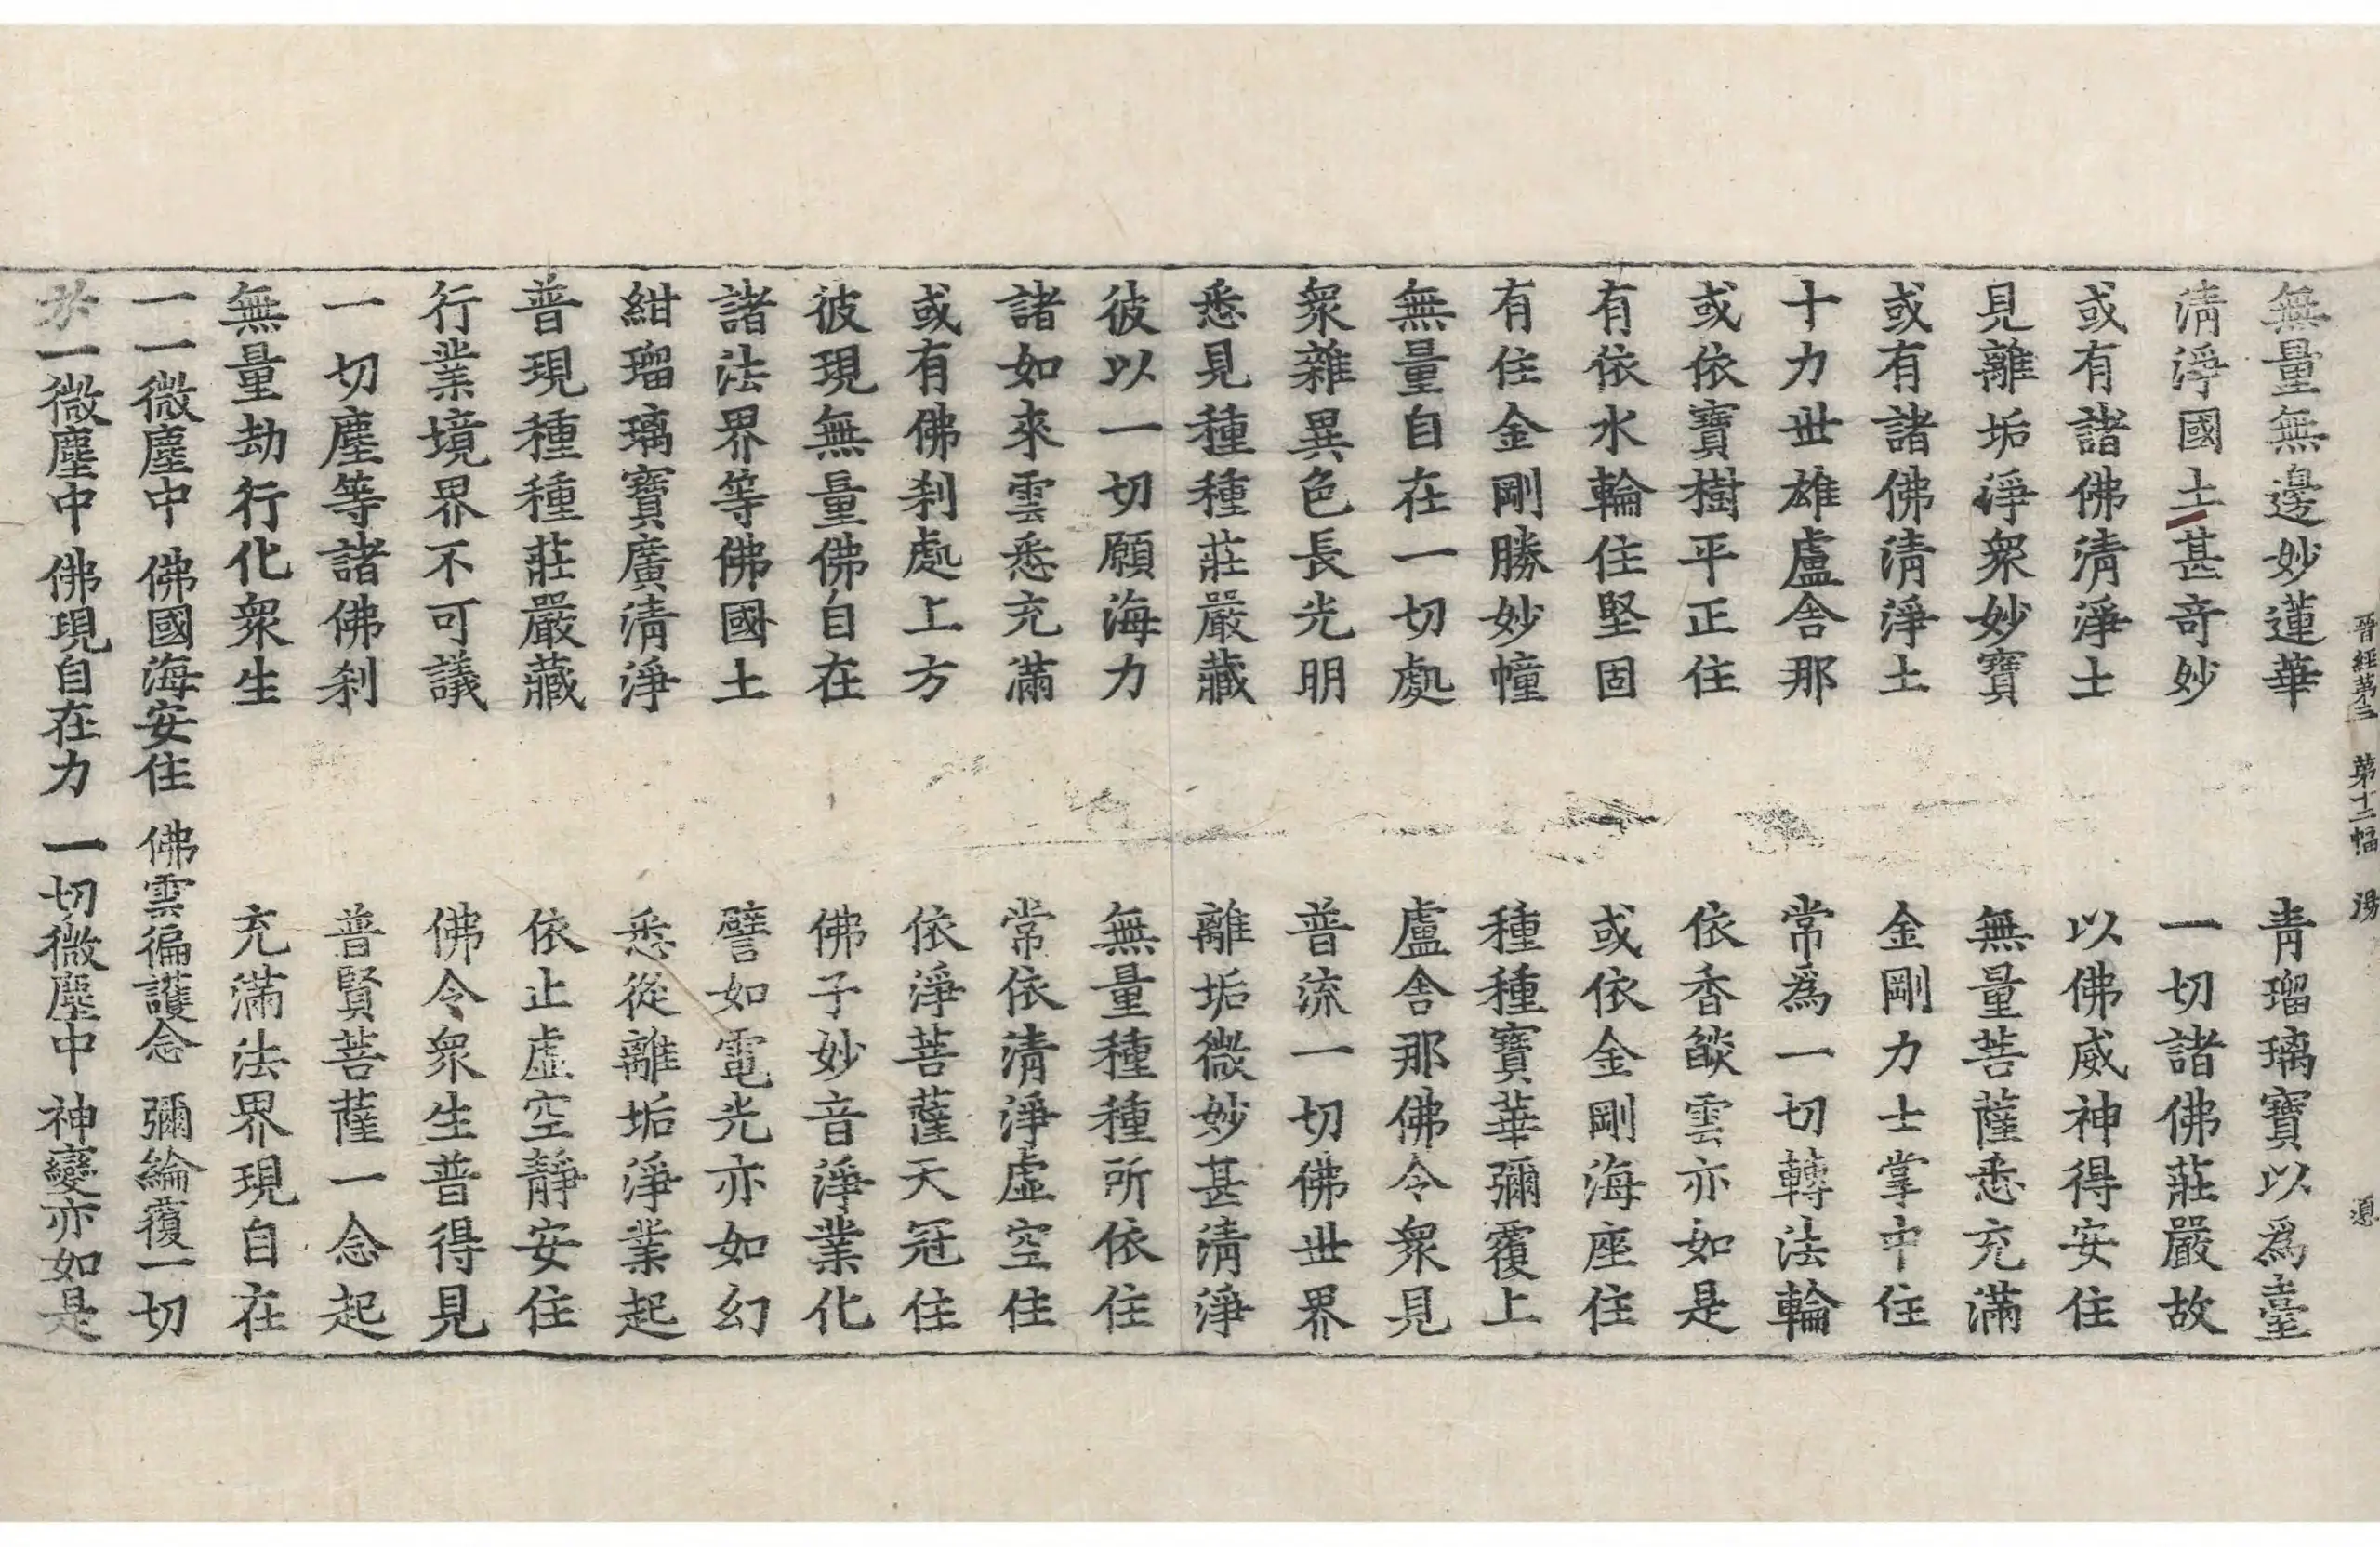 晉經第三 第十二幅 湯 遄
無量無邊妙蓮華 青瑠璃寶以爲臺
淸淨國土甚奇妙 一切諸佛莊嚴故
或有諸佛淸淨土 以佛威神得安住
見離垢淨衆妙寶 無量菩薩悉充滿
或有諸佛淸淨土 金剛力士掌中住
十力世雄盧舍那 常爲一切轉法輪
或依寶樹平正住 依香燄雲亦如是
有依水輪住堅固 或依金剛海座住
有住金剛勝妙幢 種種寶華彌覆上
無量自在一切處 盧舍那佛令衆見
衆雜異色長光明 普流一切佛世界
悉見種種莊嚴藏 離垢微妙甚淸淨
彼以一切願海力 無量種種所依住
諸如來雲悉充滿 常依淸淨虛空住
或有佛刹處上方 依淨菩薩天冠住
彼現無量佛自在 佛子妙音淨業化
諸法界等佛國土 譬如電光亦如幻
紺瑠璃寶廣淸淨 悉從離垢淨業起
普現種種莊嚴藏 依止虛空靜安住
行業境界不可議 佛令衆生普得見
一切塵等諸佛刹 普賢菩薩一念起
無量劫行化衆生 充滿法界現自在
一一微塵中 佛國海安住 佛雲徧護念 彌綸覆一切
於一微塵中 佛現自在力 一切微塵中 神變亦如是